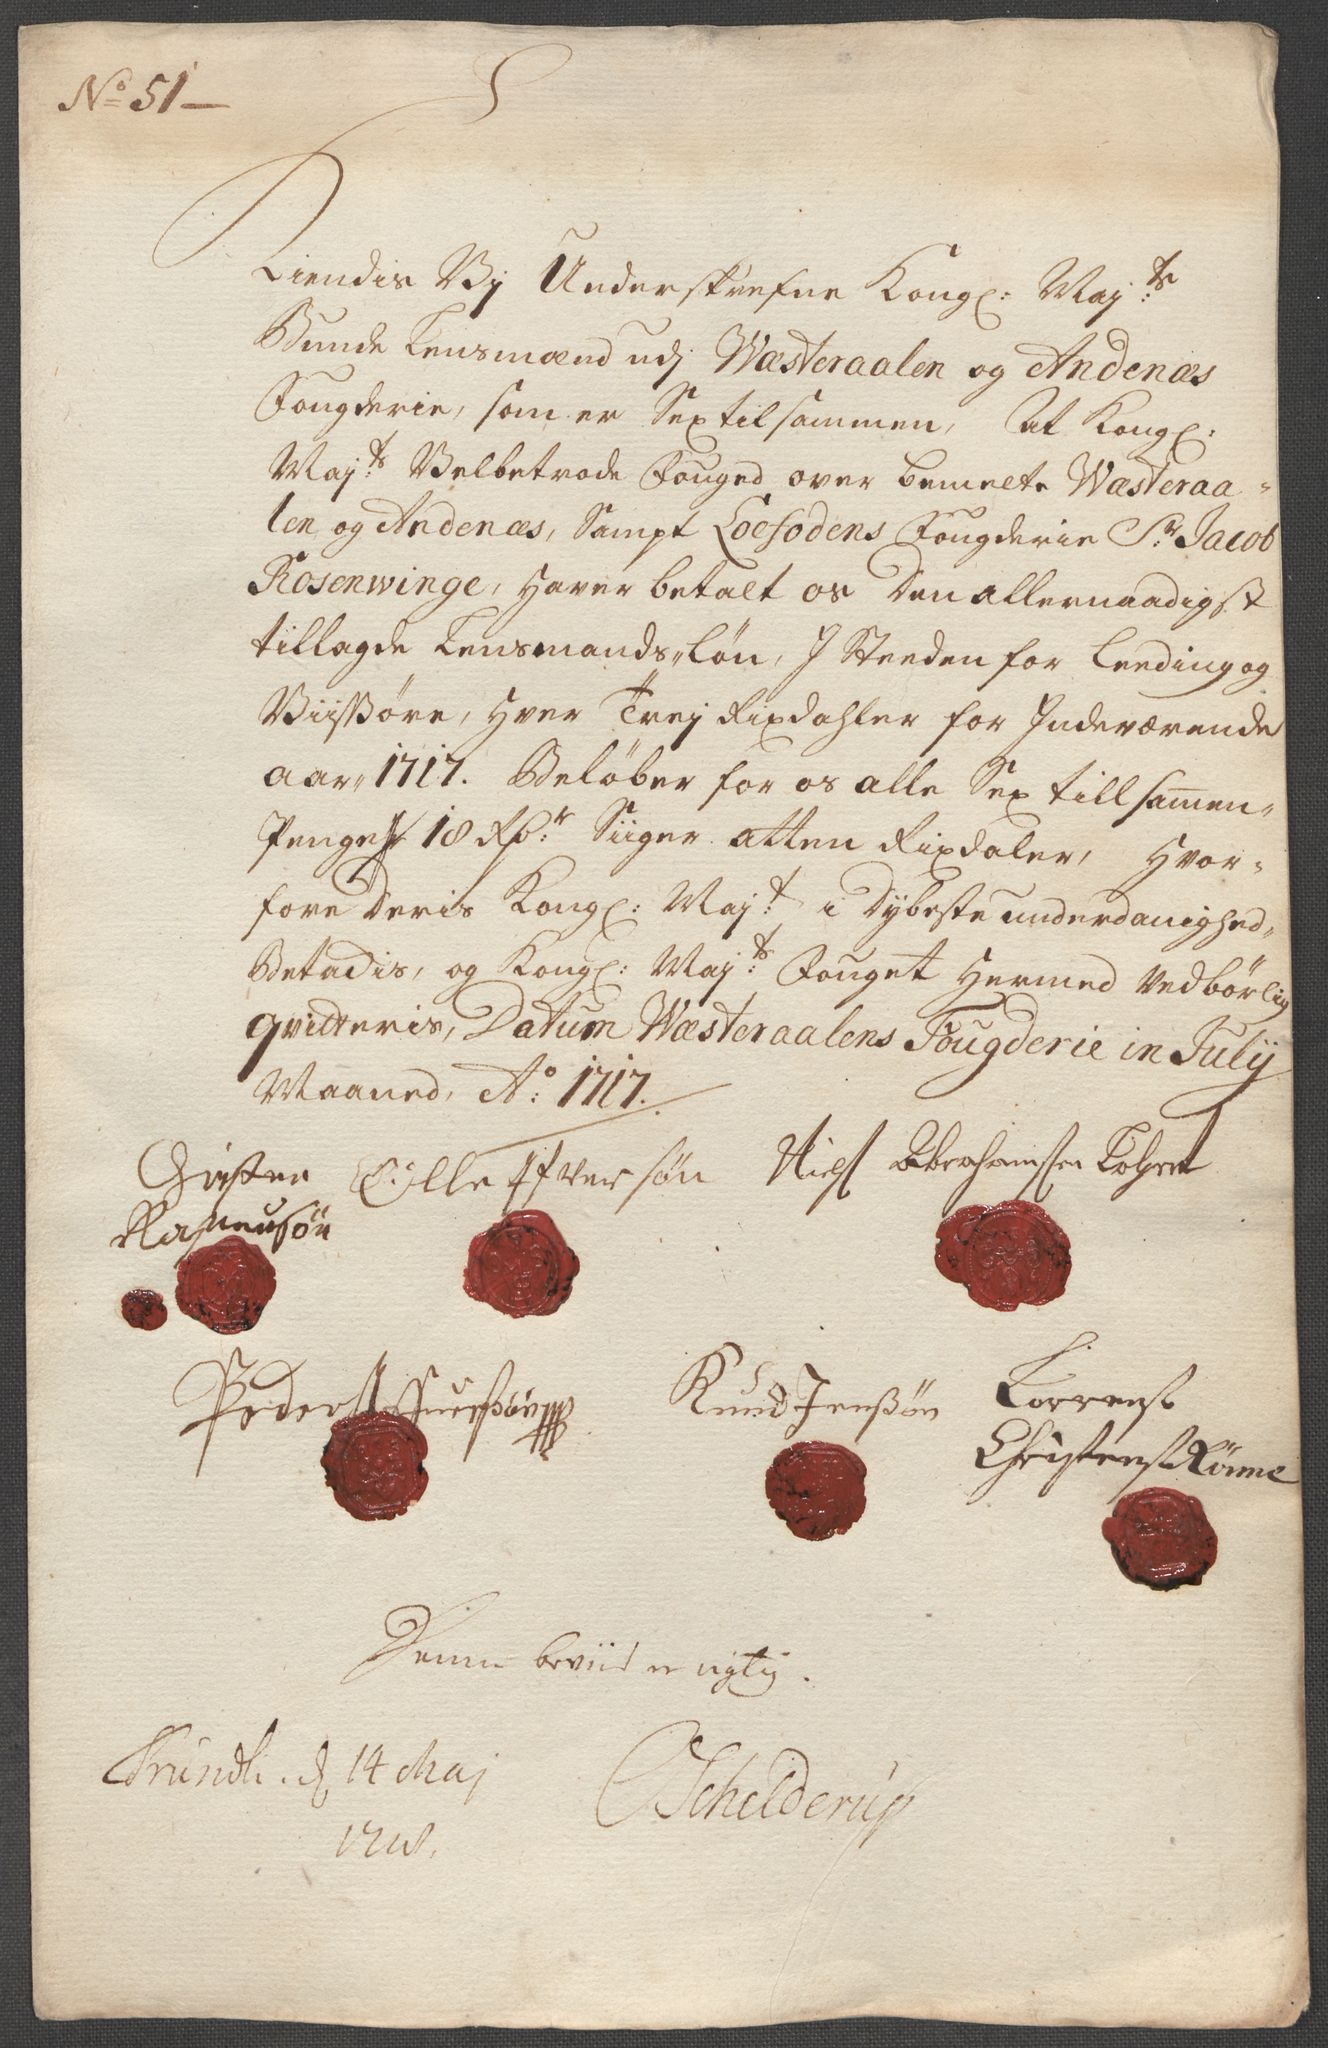 No 51
Kiendis Vij Underskrefne Kongl: Maj:ts
Bunde Lensmænd udj Wæsteraalen og Andenæs
Fougderie, som er Sex tilsammen, At Kongl:
Maj:ts Velbetrode Fouged over bemelte Wæsteraa-
len og Andenæs, Sampt Loefodens Fougderie Sr. Jacob
Rosenwinge, haver betalt os Den allernaadigst
tillagde Lensmands Løn, J Steeden for Leeding og
Viisøre, hver Trej Rixdahler for Indeværende
aar 1717. Beløber for os alle Sex till samen
Penge 18 Rd:r Siiger atten Rixdaler, Hvor-
fore Deris Kongl: Maj:t i dybeste underdanighed
Betackis, og Kongl: Maj:ts Fouget hermed Vedbørlig
qvitteris, Datum Wæsteraalens Fougderie in Julij
Maaned, Ao: 1717.
Christen Olle Ifversøn Niels Abrahamsen
Rasmusøn
Peder
Knud Jenssøn Lorrens
Christens Rønne
Denne beviis er rigtig.
Trundh. d 14 Maj
1718.
Schelderup